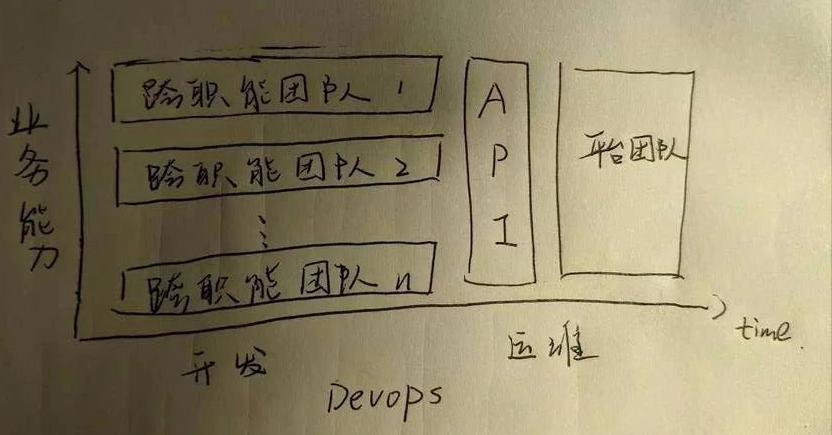 业务能力
跨职能团队 1
跨职能团队 2
跨职能团队 n
API
平台团队
time
开发
运维
Devops